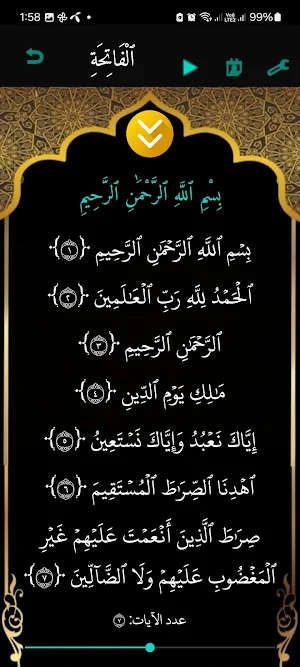 1:58 99%
ٱلْفَاتِحَةِ
بِسْمِ ٱللَّهِ ٱلرَّحْمَٰنِ ٱلرَّحِيمِ
بِسْمِ ٱللَّهِ ٱلرَّحْمَٰنِ ٱلرَّحِيمِ ﴿١﴾
ٱلْحَمْدُ لِلَّهِ رَبِّ ٱلْعَٰلَمِينَ ﴿٢﴾
ٱلرَّحْمَٰنِ ٱلرَّحِيمِ ﴿٣﴾
مَٰلِكِ يَوْمِ ٱلدِّينِ ﴿٤﴾
إِيَّاكَ نَعْبُدُ وَإِيَّاكَ نَسْتَعِينُ ﴿٥﴾
ٱهْدِنَا ٱلصِّرَٰطَ ٱلْمُسْتَقِيمَ ﴿٦﴾
صِرَٰطَ ٱلَّذِينَ أَنْعَمْتَ عَلَيْهِمْ غَيْرِ
ٱلْمَغْضُوبِ عَلَيْهِمْ وَلَا ٱلضَّآلِّينَ ﴿٧﴾
عدد الآيات: ٧